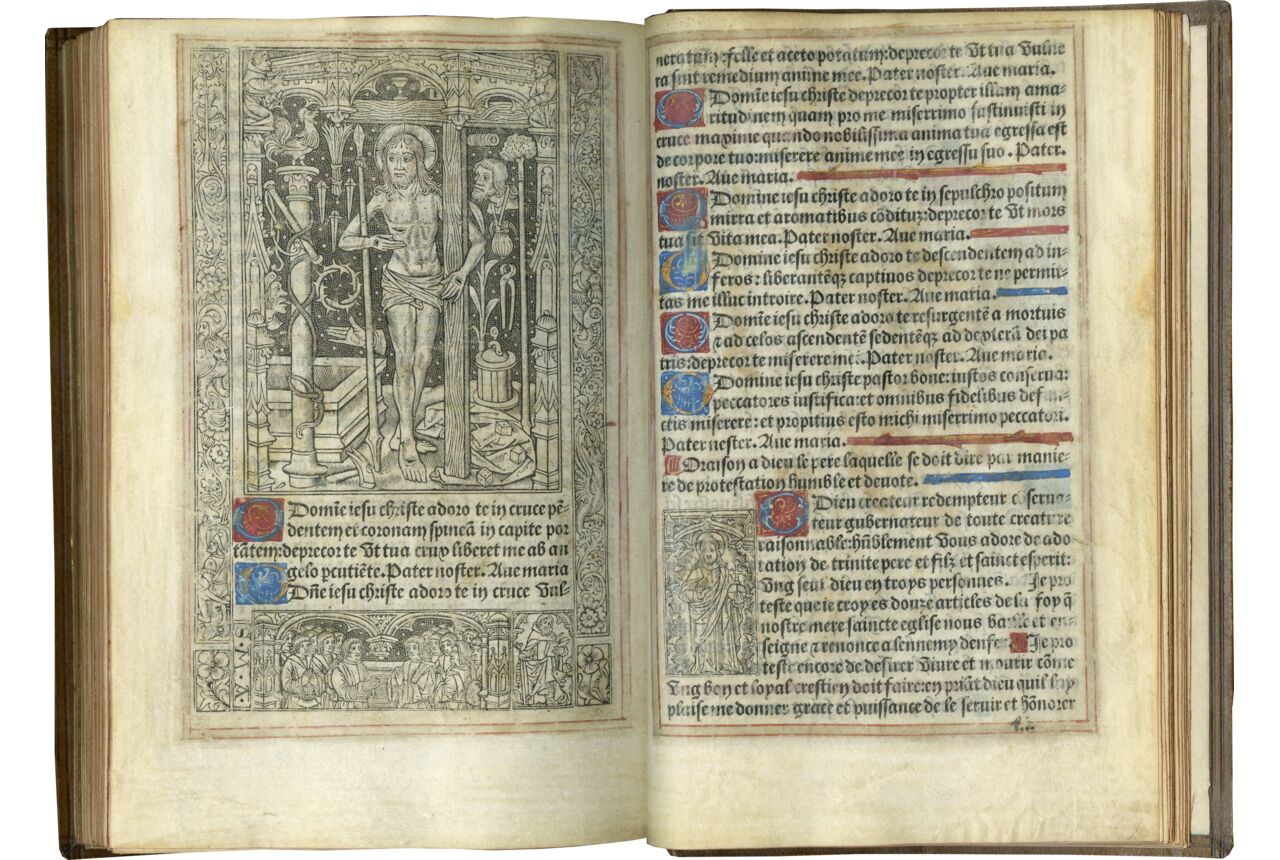 Domīe iesu christe adoro te in cruce pē-
dentem et coronam spineā in capite por
tātem: deprecor te Vt tua crux liberet me ab an
gelo pcutiēte. Pater noster. Aue maria
Dñe iesu christe adoro te in cruce Vul-
neratum: felle et aceto potatum: deprecor te Vt tua Vulne
ra sint remedium anime mee. Pater noster. Aue maria.
Domīe iesu christe deprecor te propter illam ama-
ritudinem quam pro me miserrimo sustinuisti in
cruce maxime quando nobilissima anima tua egressa est
de corpore tuo: miserere anime mee in egressu suo. Pater.
noster. Aue maria.
Domine iesu christe adoro te in sepulchro positum
mirra et aromatibus cōditum: deprecor te Vt mors
tua sit Vita mea. Pater noster. Aue maria.
Domine iesu christe adoro te descendentem ad in-
feros: liberantēqȝ captiuos deprecor te ne permit-
tas me illuc introire. Pater noster. Aue maria.
Domīe iesu christe adoro te resurgentē a mortuis
⁊ ad celos ascendentē sedentēqȝ ad dexterā dei pa
tris: deprecor te miserere mei. Pater noster. Aue maria.
Domine iesu christe pastor bone: iustos conserua:
peccatores iustifica: et omnibus fidelibus defun-
ctis miserere: et propitius esto michi miserrimo peccatori.
Pater noster. Aue maria.
Oraison a dieu le pere laquelle se doit dire par manie-
re de protestation humble et deuote.
Dieu createur redempteur cōserua-
teur gubernateur de toute creature
raisonnable: hūblement Vous adore de ado
ration de trinite pere et filz et sainct esperit:
Vng seul dieu en troys personnes. Je pro
teste que ie croy es douze articles de la foy q̄
nostre mere saincte eglise nous baille et en-
seigne ⁊ renonce a lennemy denfer Je pro
teste encore de desirer Viure et mourir cōme
Vng bon et loyal crestien doit faire: en priāt dieu quil luy
plaise me donner grace et puissance de le seruir et hōnorer